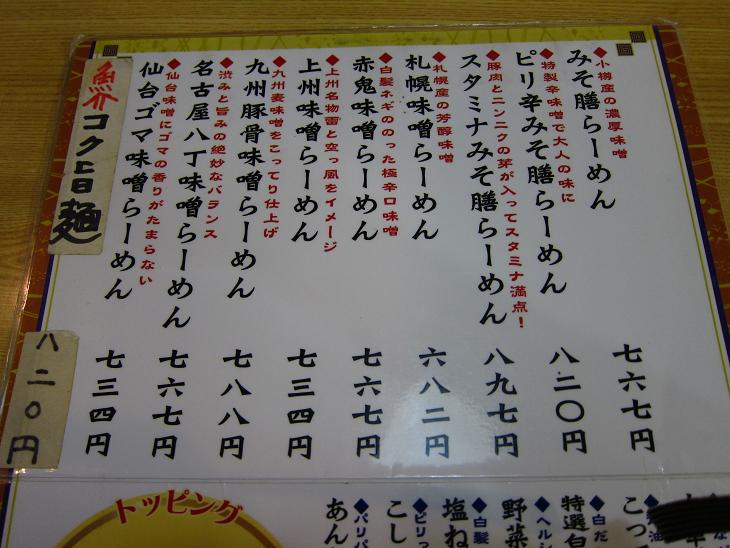 ◆小樽産の濃厚味噌
みそ膳らーめん
七六七円
◆特製辛味噌で大人の味に
ピリ辛みそ膳らーめん
八二〇円
◆豚肉とニンニクの芽が入ってスタミナ満点！
スタミナみそ膳らーめん
八九七円
◆札幌産の芳醇味噌
札幌味噌らーめん
六八二円
◆白髪ネギののった極辛口味噌
赤鬼味噌らーめん
七六七円
◆上州名物雷と空っ風をイメージ
上州味噌らーめん
七三四円
◆九州麦味噌をこってり仕上げ
九州豚骨味噌らーめん
七八八円
◆渋みと旨みの絶妙なバランス
名古屋八丁味噌らーめん
七六七円
◆仙台味噌にゴマの香りがたまらない
仙台ゴマ味噌らーめん
七三四円
魚介コク旨麺
八二〇円
こっ
◆白だ
特選白
◆ヘルシ
野菜
◆白髪
塩ね
◆ピリっ
こし
◆パリパ
あん
トッピング